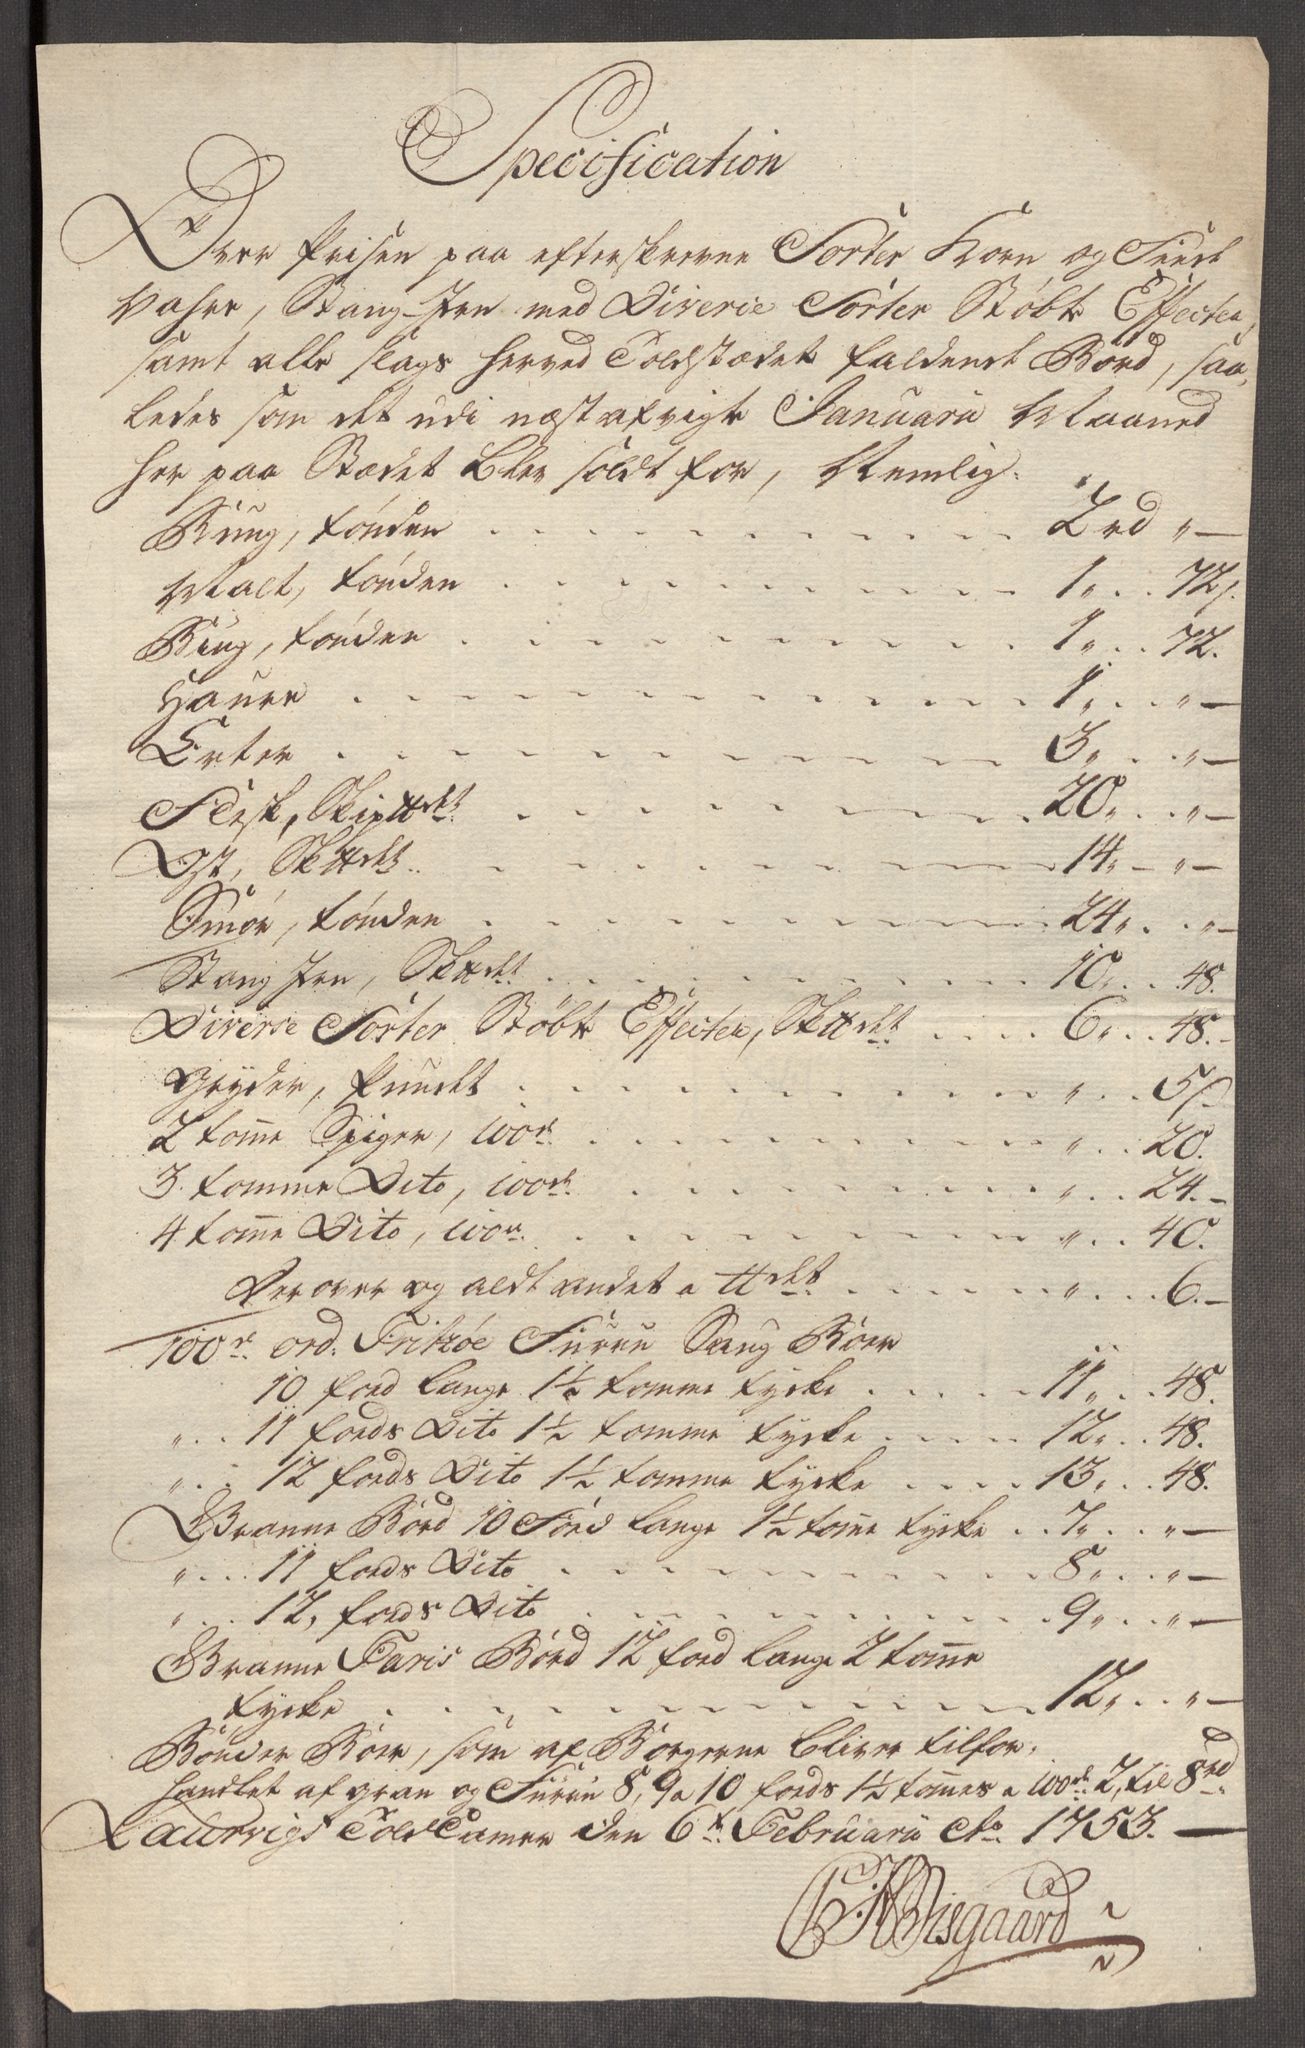 Specification
Over Prisen paa efterskrevne Sorter Korn og Feedt
Vahre, Stang-Jern med Diverse Sorter Støbte Effecter,
samt alle slags herved Toldstædet faldende Bord, saa,
ledes som det udi næstafvigte Januarii Maaned
her paa Stædet blev soldt for, Nemlig.
Rug, tønden 2 rd " —
Malt, tønden 1 " 72 s.
Biug, tønden 1 " 72.
Haure 1 " " —
Erter 3 " " —
Flesk, Skip℔det 20 " " —
Ost, Sk℔det 14 " " —
Smør, tønden 24 " " —
Stang Jern, Sk℔det 10 " 48.
Diverse Sorter Støbte Effecter, Sk℔det 6 " 48. —
Gryder, Pundet " 5 s.
2 tomme Spiger, 100de " 20.
3 tomme Dito, 100de " 24. —
4 tomme Dito, 100de " 40.
Derover og aldt andet a ℔det " 6. —
100de ord. Fritzøe Furru Saug Børr
10 fod lange 1½ tomme tycke 11 " 48.
" 11 fods Dito 1½ tomme tycke 12 " 48.
" 12 fods Dito 1½ tomme tycke 13 " 48.
Granne Bord 10 Fod lange 1½ tomme tycke 7 " " —
" 11 fods Dito 8 " " —
" 12, fods Dito 9 " " —
Granne Bord 12 fod lange 2 tomme
tycke 12 " " —
Bønder Børr, som af Borgerne bliver tilfor,
handlet af gran og Furru 8, 9 a 10 fods 1½ tommes a 100de 2, til 8 rd
Laurvigs Told Camer den 6te Februarii Ao 1753. —
Wisgaard